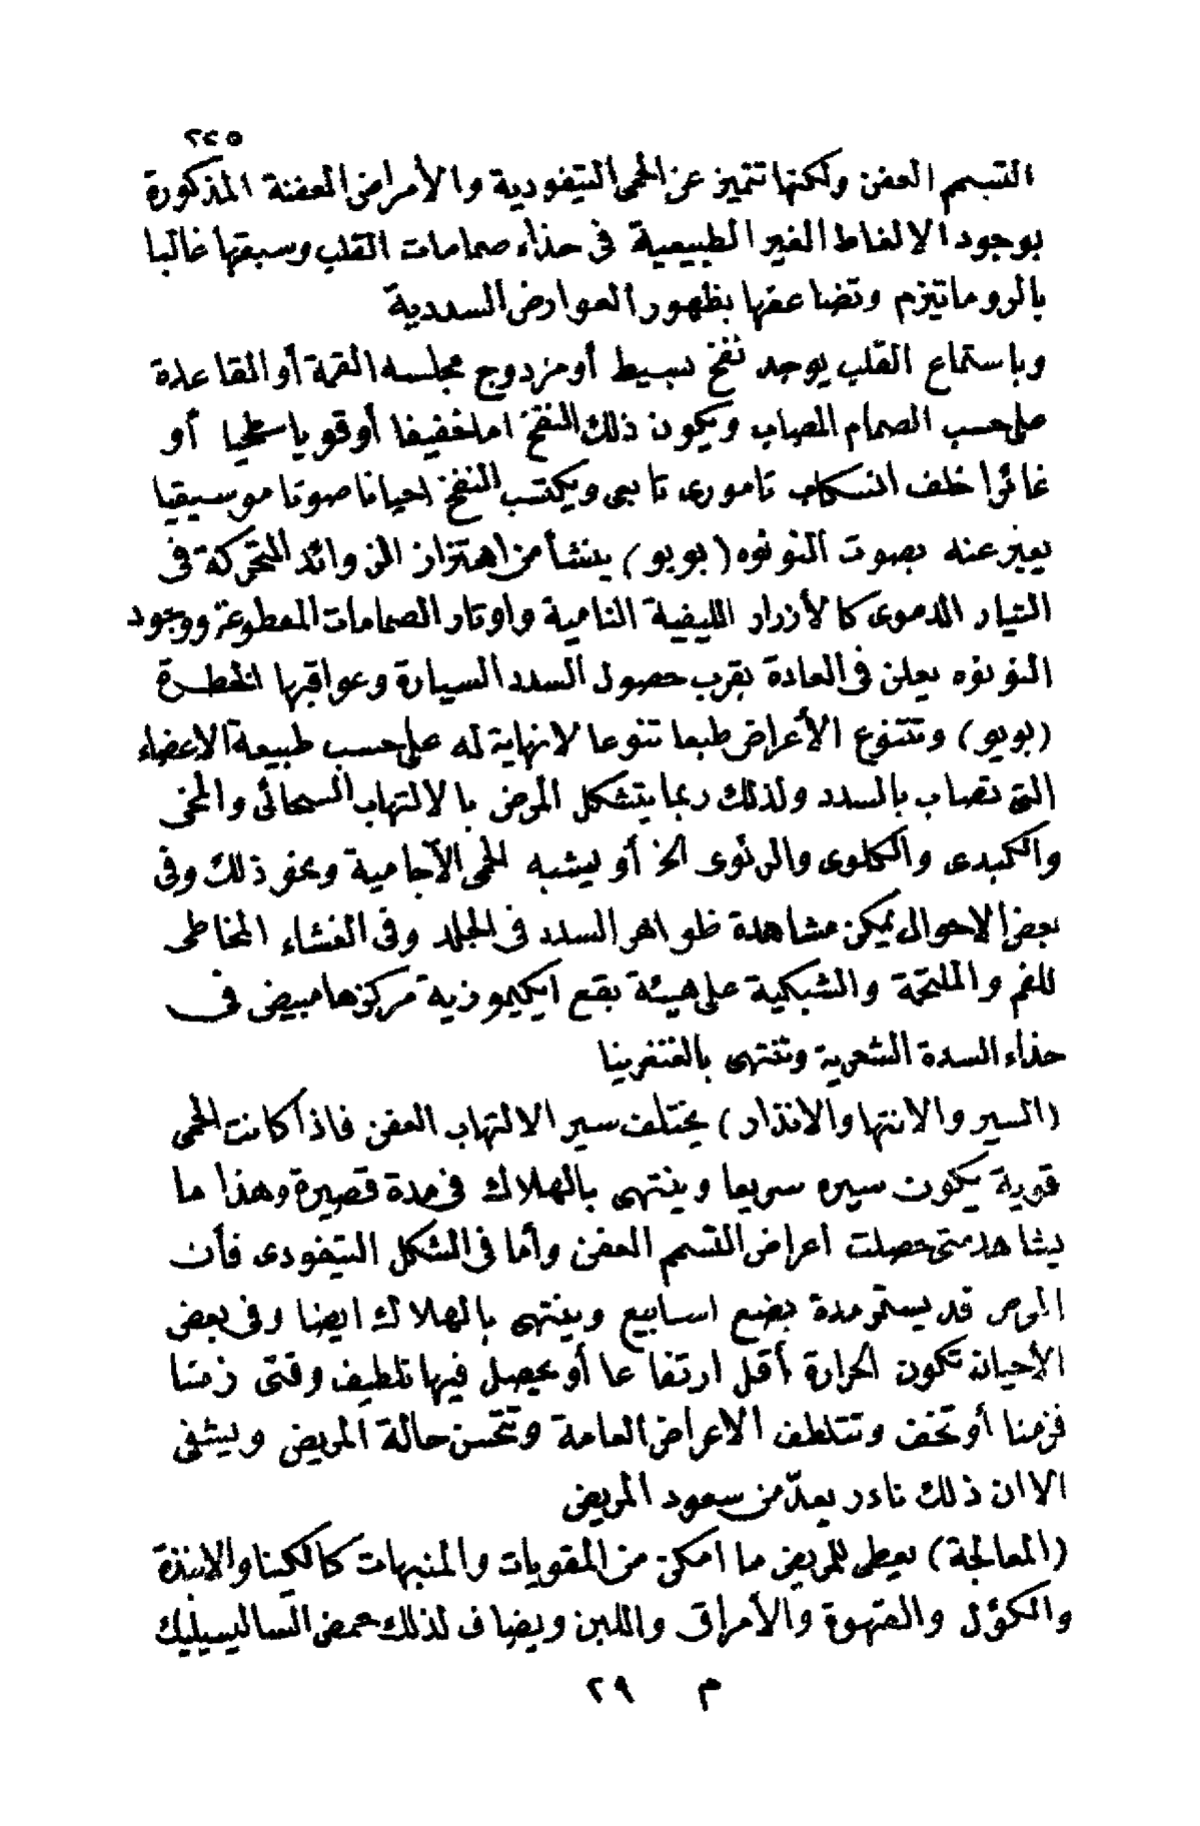 ٢٢٥
التسمم العفن ولكنها تتميز عن الحمى التيفودية والأمراض العفنة المذكورة
بوجود الالغاط الغير الطبيعية في حذاء صمامات القلب وسبقها غالبا
بالروماتيزم وتضاعفها بظهور العوارض السددية
وباستماع القلب يوجد نفخ بسيط أو مزدوج مجلسه القمة أو القاعدة
على حسب الصمام المصاب ويكون ذلك النفخ اما خفيفا أو قويا سطحيا أو
غائرا خلف احتكاك تامورى تابى ويكتسب النفخ احيانا صوتا موسيقيا
يعبر عنه بصوت النونوه (بويو) ينشأ من اهتزاز الزوائد المتحركة في
التيار الدموى كالأزرار الليفية النامية واوتار الصمامات المقطوعة ووجود
النونوه يعلن في العادة بقرب حصول السدد السيارة وعواقبها الخطرة
(بويو) وتتنوع الأعراض طبعا تنوعا لانهاية له على حسب طبيعة الاعضاء
التي تصاب بالسدد ولذلك ربما يتشكل المرض بالالتهاب السحائى والمخى
والكبدى والكلوى والرئوى الخ أو يشبه الحمى الآجامية ونحو ذلك وفي
بعض الاحوال يمكن مشاهدة ظواهر السدد في الجلد وفي الغشاء المخاطى
للفم والملتحمة والشبكية على هيئة بقع ايكيموزية مركزها مبيض في
حذاء السدة الشعرية وتنتهى بالغنغرينا
(السير والانتها والانذار) يختلف سير الالتهاب العفن فاذا كانت الحمى
قوية يكون سيره سريعا وينتهى بالهلاك في مدة قصيرة وهذا ما
يشاهد متى حصلت اعراض التسمم العفن وأما في الشكل التيفودى فأن
المرض قد يستمر مدة بضع اسابيع وينتهى بالهلاك ايضا وفي بعض
الأحيان تكون الحرارة أقل ارتفاعا أو يحصل فيها تلطيف وقتى زمنا
فزمنا أو تخف وتتلطف الاعراض العامة وتتحسن حالة المريض ويشفى
الا ان ذلك نادر يعدّ من سعود المريض
(المعالجة) يعطى للمريض ما امكن من المقويات والمنبهات كالكينا والانبذة
والكؤل والقهوة والأمراق واللبن ويضاف لذلك حمض الساليسيليك
م ٢٩